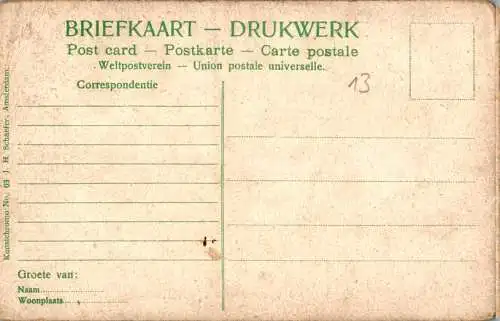 BRIEFKAART — DRUKWERK
Post card — Postkarte — Carte postale
Weltpostverein — Union postale universelle.
13
Correspondentie
Kunstchromo No. 63 J. H. Schaefer, Amsterdam.
Groete van:
Naam
Woonplaats